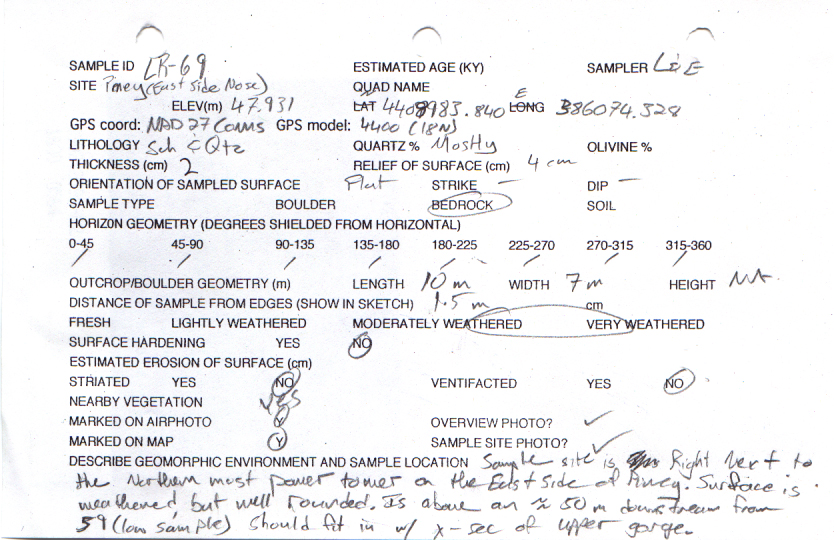 SAMPLE ID LR-69 ESTIMATED AGE (KY) SAMPLER L & E
SITE Piney (East Side Nose) QUAD NAME
ELEV(m) 47.931 LAT 4408983.840 E LONG 386074.328
GPS coord: NAD 27 Conus GPS model: 4400 (18N)
LITHOLOGY Sch & Qtz QUARTZ % Mostly OLIVINE %
THICKNESS (cm) 2 RELIEF OF SURFACE (cm) 4 cm
ORIENTATION OF SAMPLED SURFACE Flat STRIKE — DIP —
SAMPLE TYPE BOULDER BEDROCK SOIL
HORIZON GEOMETRY (DEGREES SHIELDED FROM HORIZONTAL)
0-45 45-90 90-135 135-180 180-225 225-270 270-315 315-360
/ / / / / / / /
OUTCROP/BOULDER GEOMETRY (m) LENGTH 10 m WIDTH 7 m HEIGHT NA
DISTANCE OF SAMPLE FROM EDGES (SHOW IN SKETCH) 1.5 m cm
FRESH LIGHTLY WEATHERED MODERATELY WEATHERED VERY WEATHERED
SURFACE HARDENING YES NO
ESTIMATED EROSION OF SURFACE (cm)
STRIATED YES NO VENTIFACTED YES NO
NEARBY VEGETATION YES
MARKED ON AIRPHOTO Y OVERVIEW PHOTO? ✓
MARKED ON MAP Y SAMPLE SITE PHOTO? ✓
DESCRIBE GEOMORPHIC ENVIRONMENT AND SAMPLE LOCATION Sample site is Right Next to
the Northern most power tower on the East Side of Piney. Surface is
weathered, but well rounded. Is above an ≈ 50 m downstream from
59 (low sample) Should fit in w/ x-sec of upper gorge.